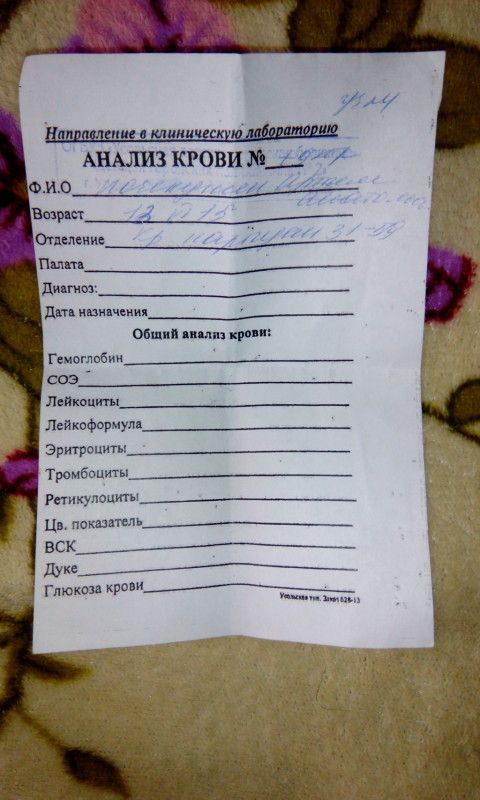 Направление в клиническую лабораторию
АНАЛИЗ КРОВИ №
Ф.И.О
Возраст
Отделение Кр партизан 31-59
Палата
Диагноз:
Дата назначения
Общий анализ крови:
Гемоглобин
СОЭ
Лейкоциты
Лейкоформула
Эритроциты
Тромбоциты
Ретикулоциты
Цв. показатель
ВСК
Дуке
Глюкоза крови
Усольская тип. Заказ 628-13